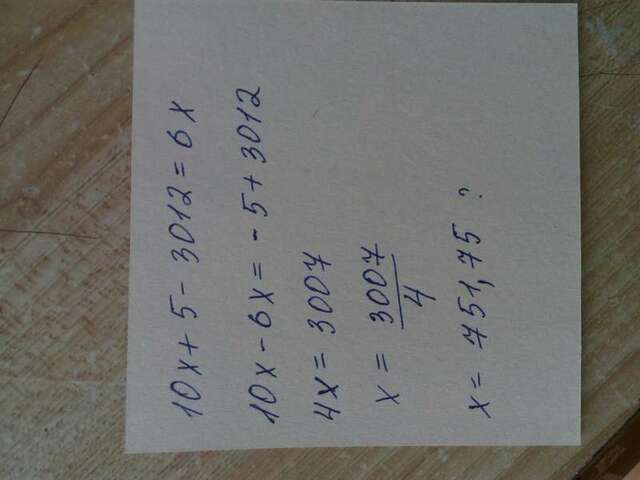 10x+5-3012=6x
10x-6x=-5+3012
4x=3007
x=3007/4
x=751,75 ?